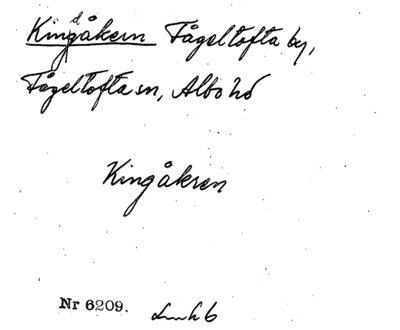 Kingdåkern Fågeltofta by,
Fågeltofta sn, Albo hd
Kingåkren
Nr 6209.